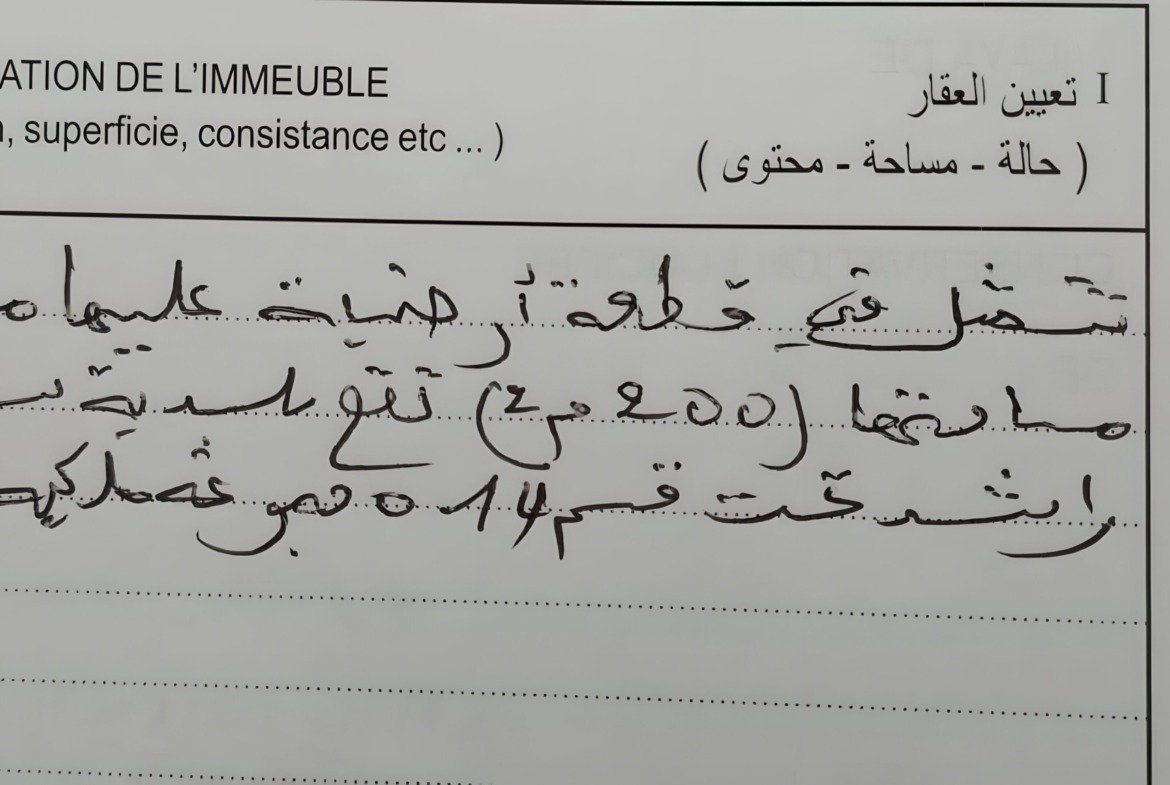 ATION DE L'IMMEUBLE
, superficie, consistance etc ... )
I تعيين العقار
( حالة - مساحة - محتوى )
تتمثل في قطعة أرضية عليها
مساحتها (200 م2) تقع بلدية
راشد تحت قسم 14.0 مجموعة ملكية